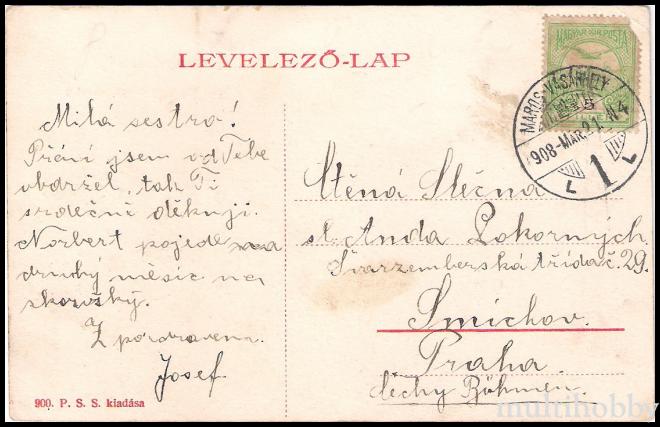 LEVELEZŐ-LAP
MAGYAR KIR. POSTA
MAROS-VÁSÁRHELY
908-MÁR.21. N4
1
L L
Milá sestro!
Přání jsem od Tebe
obdržel, tak Ti
srdečně děkuji.
Norbert pojede na
druhý měsíc na
skoušky.
Z pozdravem
Josef.
Ctěná Slečna
sl. Anda Pokorných
Švarzemberská třída č. 29.
Smíchov.
Praha.
Čechy Böhmen
900. P. S. S. kiadása
multihobby